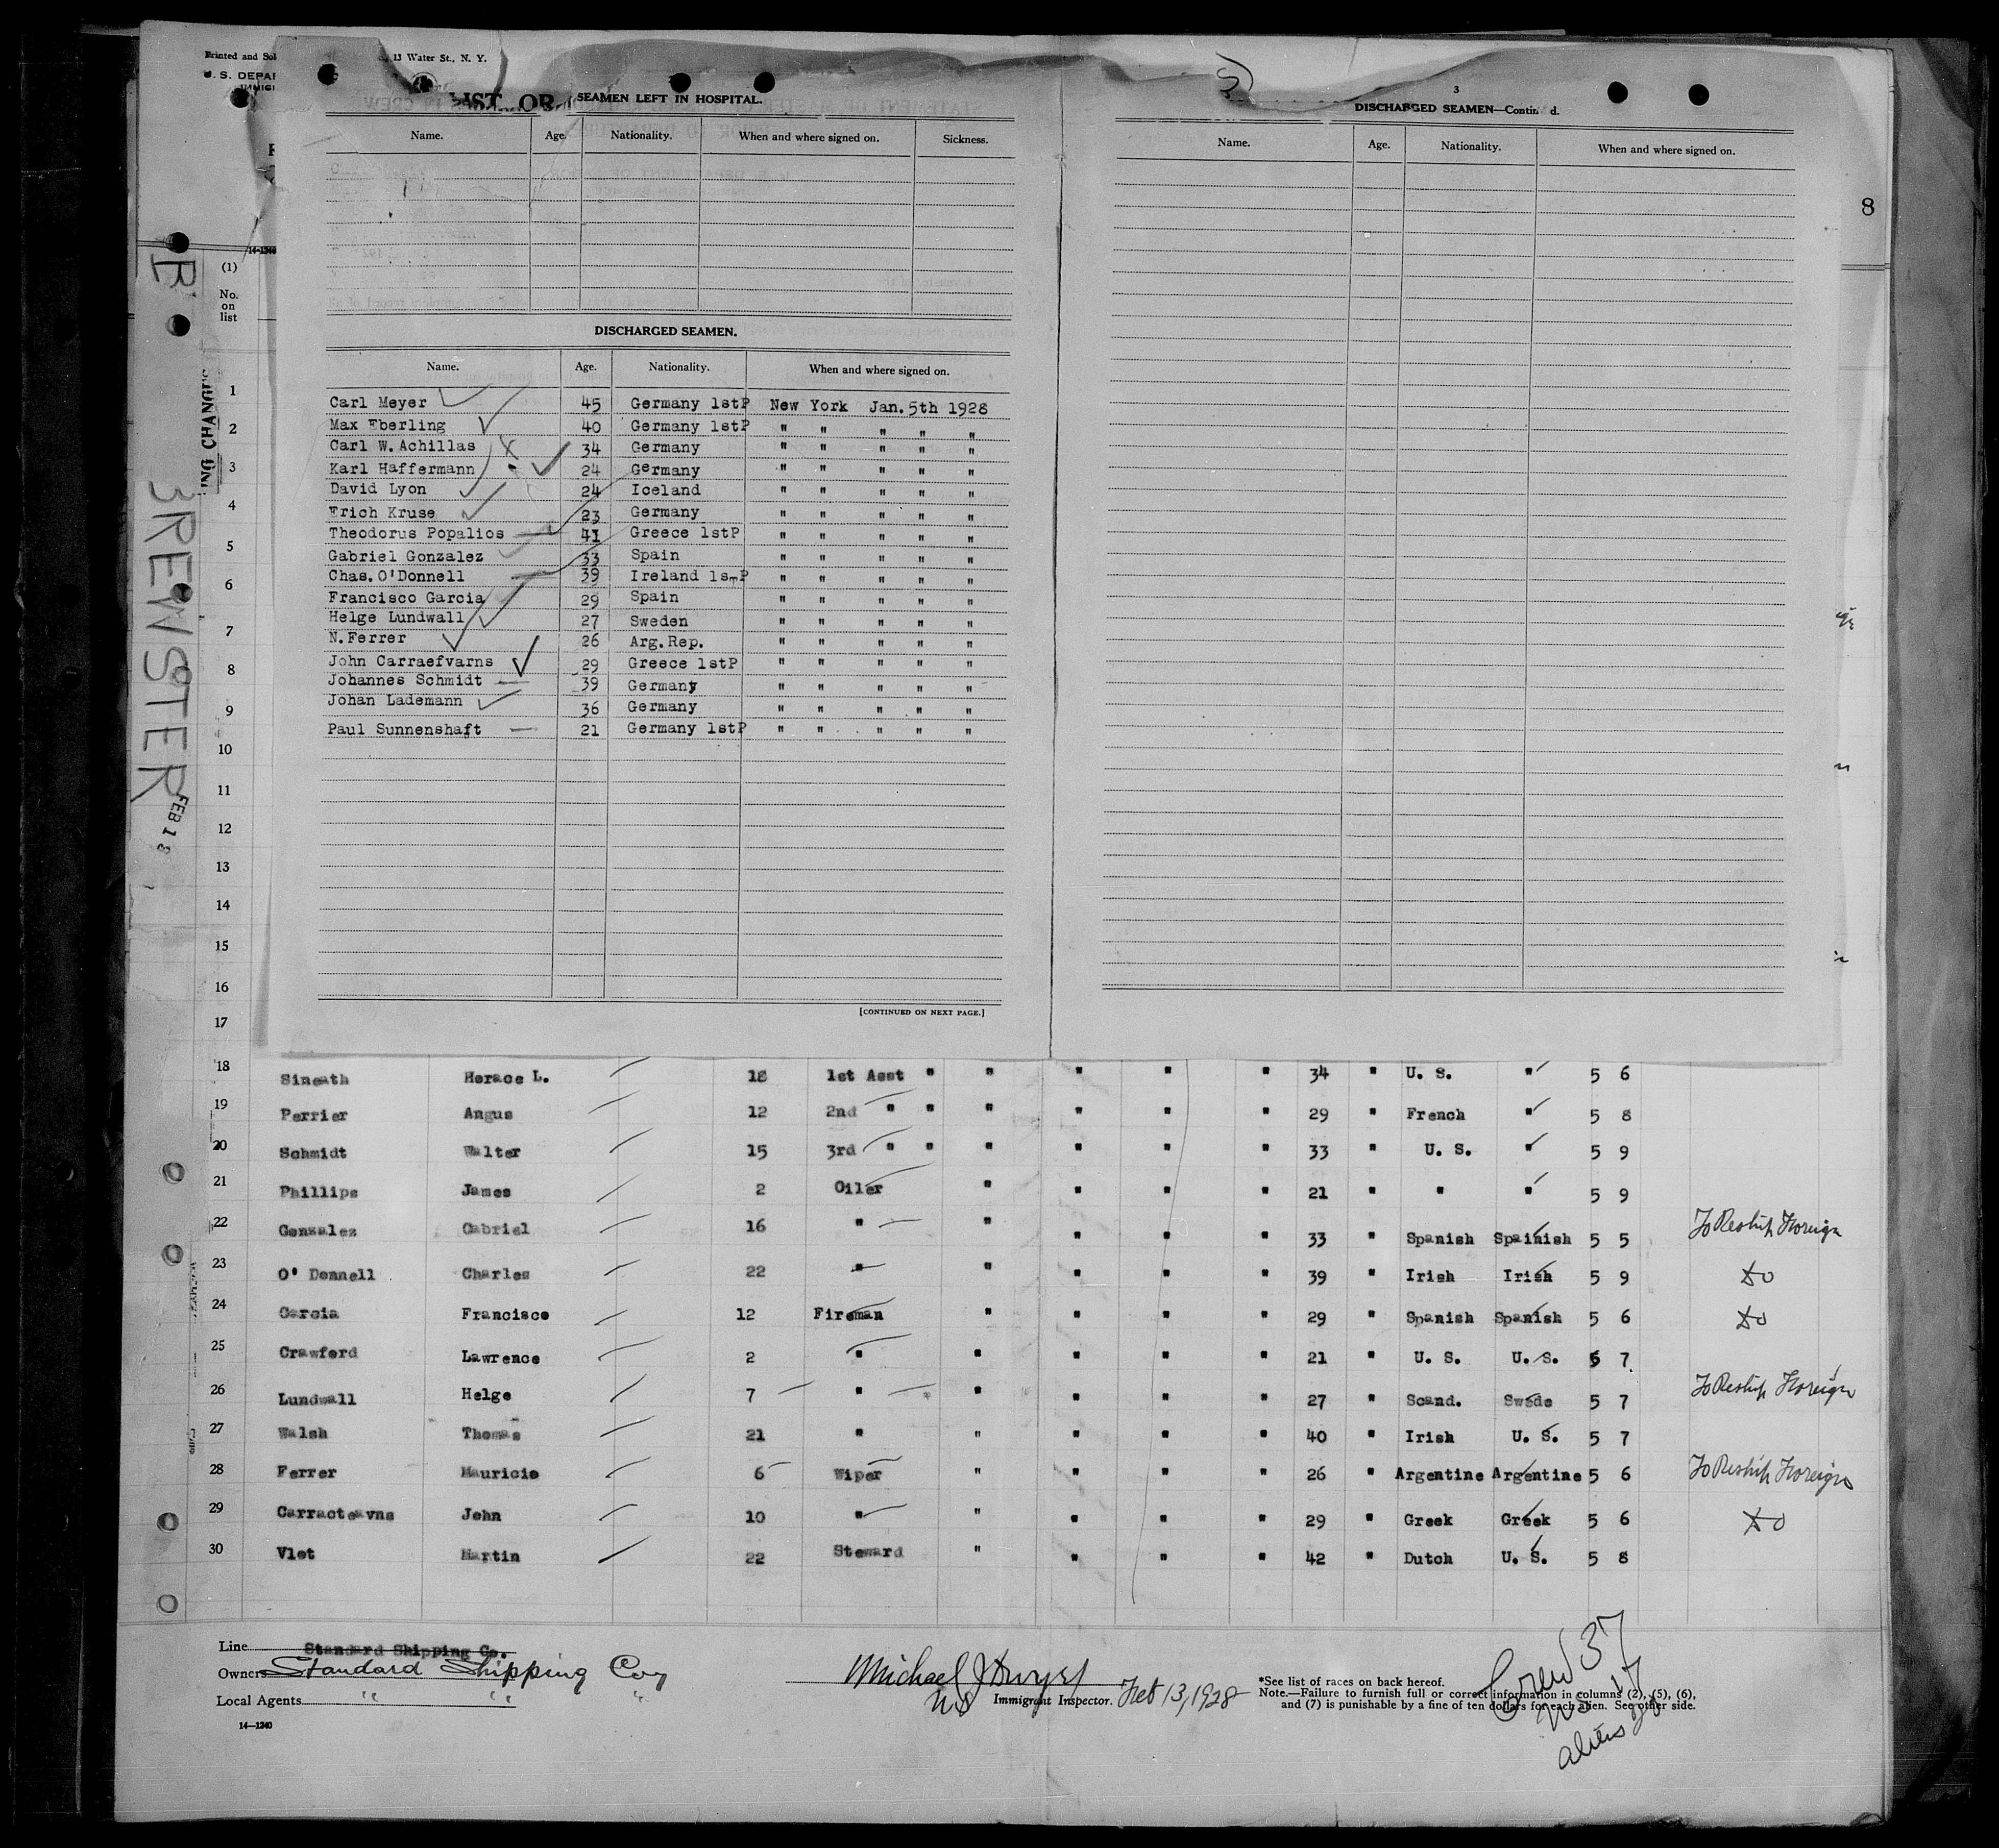 Printed and Sol
13 Water St., N. Y.
U. S. DEPAR
IMMIG
LIST OR
SEAMEN LEFT IN HOSPITAL.
Name. Age. Nationality. When and where signed on. Sickness.
DISCHARGED SEAMEN.
Name. Age. Nationality. When and where signed on.
Carl Meyer 45 Germany 1stP New York Jan. 5th 1928
Max Eberling 40 Germany 1stP " " " " "
Carl W. Achillas 34 Germany " " " " "
Karl Haffermann 24 Germany " " " " "
David Lyon 24 Iceland " " " " "
Erich Kruse 23 Germany " " " " "
Theodorus Popalios 41 Greece 1stP " " " " "
Gabriel Gonzalez 33 Spain " " " " "
Chas. O'Donnell 39 Ireland 1stP " " " " "
Francisco Garcia 29 Spain " " " " "
Helge Lundwall 27 Sweden " " " " "
N. Ferrer 26 Arg. Rep. " " " " "
John Carraefvarns 29 Greece 1stP " " " " "
Johannes Schmidt 39 Germany " " " " "
Johan Lademann 36 Germany " " " " "
Paul Sunnenshaft 21 Germany 1stP " " " " "
[CONTINUED ON NEXT PAGE.]
3
DISCHARGED SEAMEN—Contin d.
Name. Age. Nationality. When and where signed on.
8
BREWSTER
FEB 1 8
ING CHANGES
14-1240
(1)
No.
on
list
1
2
3
4
5
6
7
8
9
10
11
12
13
14
15
16
17
18 Sineath Horace L. 18 1st Asst " " " " " 34 " U. S. " 5 6
19 Perrier Angus 12 2nd " " " " " " 29 " French " 5 8
20 Schmidt Walter 15 3rd " " " " " " 33 " U. S. " 5 9
21 Phillips James 2 Oiler " " " " 21 " " " 5 9
22 Gonzalez Gabriel 16 " " " " " 33 " Spanish Spainish 5 5 To Reship Foreign
23 O' Donnell Charles 22 " " " " " 39 " Irish Irish 5 9 do
24 Garcia Francisco 12 Fireman " " " " 29 " Spanish Spanish 5 6 do
25 Crawford Lawrence 2 " " " " " 21 " U. S. U. S. 5 7
26 Lundwall Helge 7 " " " " " 27 " Scand. Swede 5 7 To Reship Foreign
27 Walsh Thomas 21 " " " " " 40 " Irish U. S. 5 7
28 Ferrer Mauricio 6 Wiper " " " " 26 " Argentine Argentine 5 6 To Reship Foreign
29 Carracteavns John 10 " " " " " 29 " Greek Greek 5 6 do
30 Vlet Martin 22 Steward " " " " 42 " Dutch U. S. 5 8
Line Standard Shipping Co.
Owners Standard Shipping Coy
Local Agents " " "
14—1240
Michael J Dwyer
Immigrant Inspector. Feb 13, 1928
*See list of races on back hereof.
Note.—Failure to furnish full or correct information in columns (2), (5), (6),
and (7) is punishable by a fine of ten dollars for each alien. See other side.
Crew 37
aliens